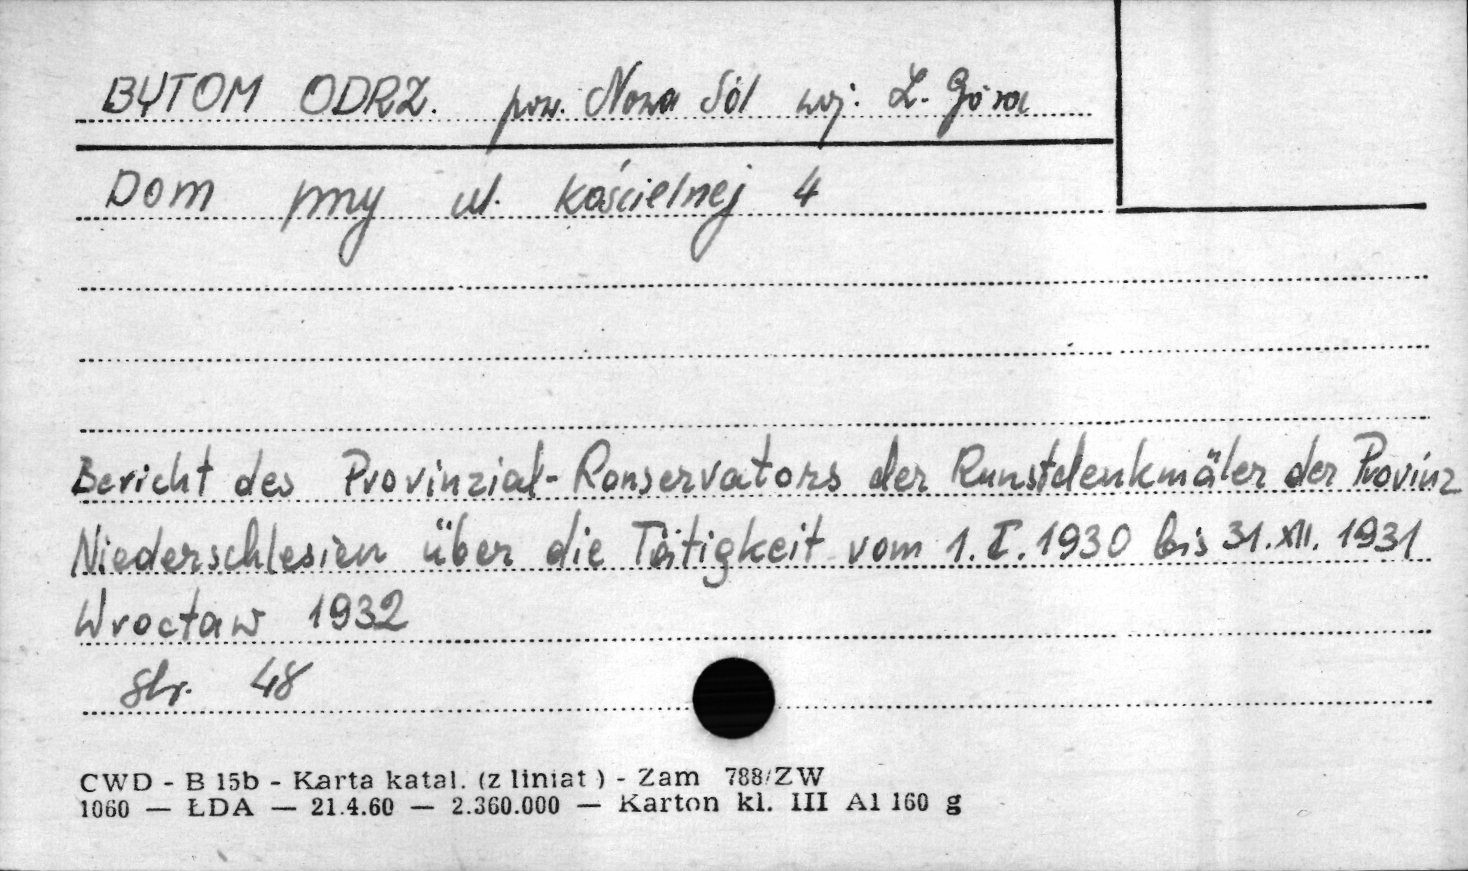 BYTOM ODRZ. pow. Nowa Sól woj. Z. Góra
Dom przy ul. Kościelnej 4
Bericht des Provinzial-Konservators der Kunstdenkmäler der Provinz
Niederschlesien über die Tätigkeit vom 1.I.1930 bis 31.XII.1931
Wrocław 1932
str. 48
CWD - B 15b - Karta katal. (z liniat ) - Zam 788/ZW
1060 — ŁDA — 21.4.60 — 2.360.000 — Karton kl. III A1 160 g